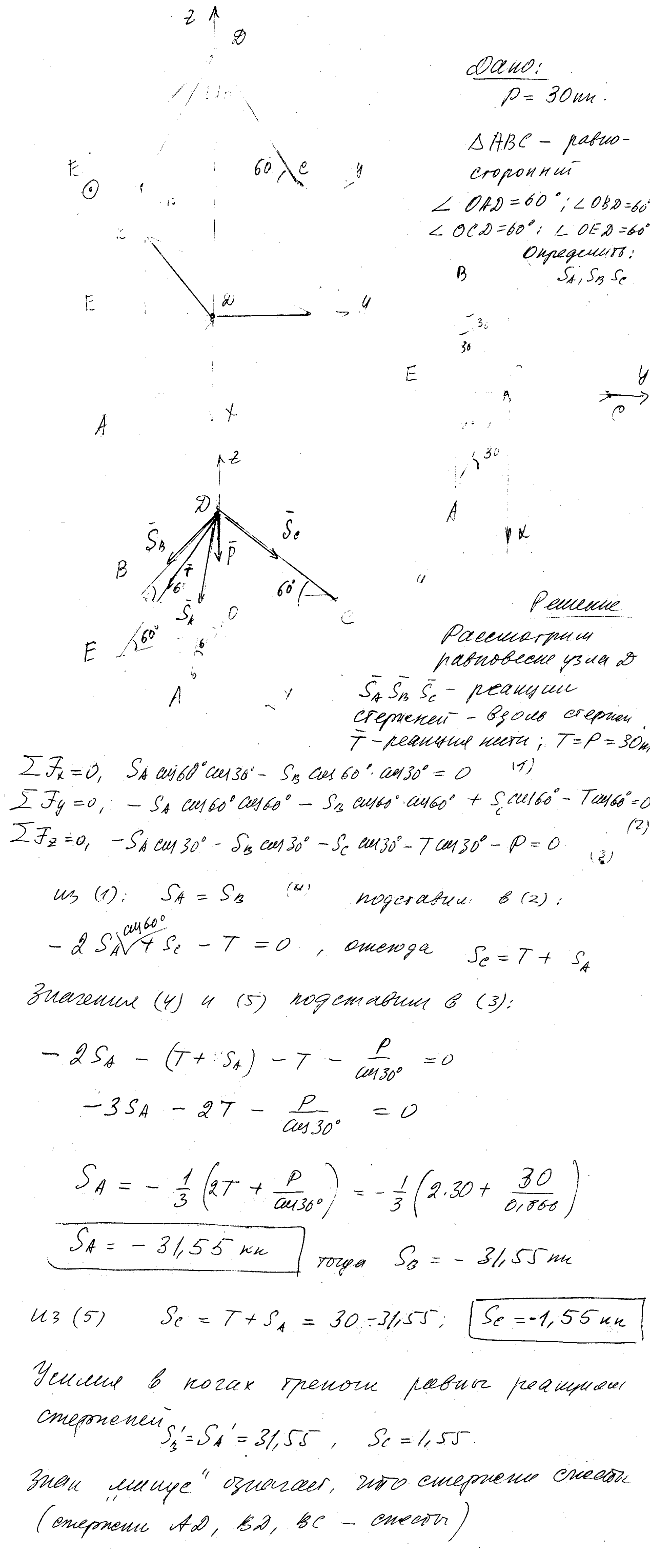 z
D
Дано:
P = 30 кн.
Δ ABC – равно-
сторонний
∠ OAD = 60°; ∠ OBD = 60°
∠ OCD = 60°; ∠ OED = 60°
Определить:
S_A, S_B S_C
E
60
C
y
E
D
y
A
X
B
30
30
E
D
y
C
30
A
X
z
D
S̄_B
S̄_C
P̄
B
T̄
S̄_A
60°
O
C
E
60°
A
Решение
Рассмотрим
равновесие узла D
S̄_A S̄_B S̄_C – реакции
стержней – вдоль стержн
T̄ – реакция нити; T = P = 30
ΣF_x = 0, S_A cos60° cos30° – S_B cos60° · cos30° = 0 (1)
ΣF_y = 0, – S_A cos60° cos60° – S_B cos60° · cos60° + S_C cos60° – T cos60° = 0
(2)
ΣF_z = 0, – S_A cos30° – S_B cos30° – S_C cos30° – T cos30° – P = 0 (3)
из (1): S_A = S_B (4) подставим в (2):
– 2 S_A cos60° + S_C – T = 0 , отсюда S_C = T + S_A
Значения (4) и (5) подставим в (3):
– 2S_A – (T + S_A) – T – P/cos30° = 0
– 3S_A – 2T – P/cos30° = 0
S_A = – 1/3 (2T + P/cos30°) = – 1/3 (2·30 + 30/0,866)
S_A = – 31,55 кн тогда S_B = – 31,55 кн
из (5) S_C = T + S_A = 30 – 31,55; S_C = -1,55 кн
Усилия в ногах треноги равны реакциям
стержней S_B' = S_A' = 31,55 , S_C = 1,55.
Знак „минус" означает, что стержни сжаты
(стержни AD, BD, BC – сжаты)